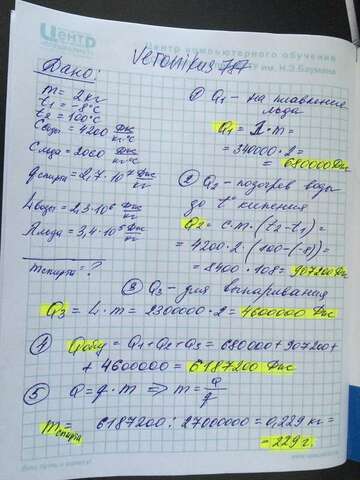 Центр
Центр компьютерного обучения
МГТУ им. Н.Э.Баумана
Veronikus 787
Дано:
m = 2 кг
t₁ = -8°C
t₂ = 100°C
C воды = 4200 Дж/кг·°C
C льда = 2060 Дж/кг·°C
q спирта = 2,7·10⁷ Дж/кг
L воды = 2,3·10⁶ Дж/кг
λ льда = 3,4·10⁵ Дж/кг
m спирта = ?
① Q₁ - на плавление
льда
Q₁ = λ·m =
= 340000·2 =
= 680000 Дж
② Q₂ - подогрев воды
до t° кипения
Q₂ = c·m·(t₂-t₁) =
= 4200·2·(100-(-8)) =
= 8400·108 = 907200 Дж
③ Q₃ - для выпаривания
Q₃ = L·m = 2300000·2 = 4600000 Дж
④ Qобщ = Q₁+Q₂+Q₃ = 680000+907200+
+ 4600000 = 6187200 Дж
⑤ Q = q·m ⇒ m = Q/q
m спирта = 6187200 : 27000000 = 0,229 кг =
= 229 г.